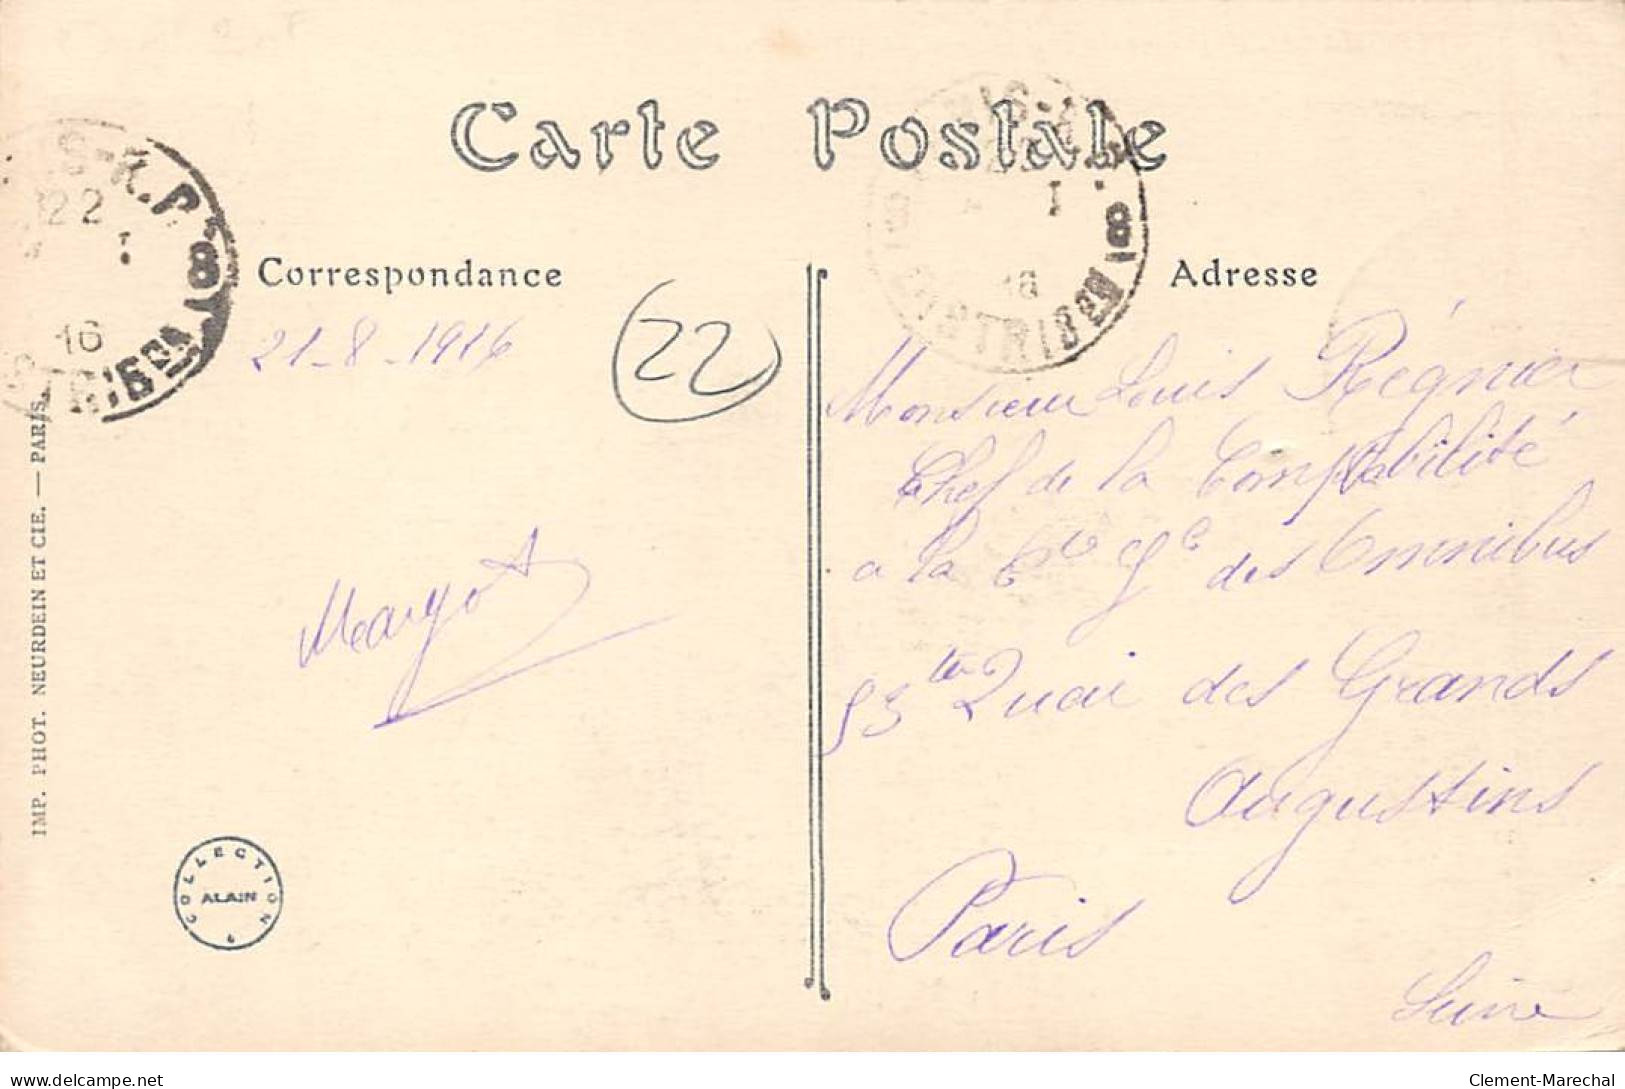 Carte Postale
Correspondance
21-8-1916
22
Margot
Adresse
Monsieur Louis Régnier
Chef de la Comptabilité
a la Cie Gle des Omnibus
53ter Quai des Grands
Augustins
Paris
Seine
IMP. PHOT. NEURDEIN ET CIE. — PARIS.
COLLECTION
ALAIN
22
16
DISTRIBON
16
DISTRIBON
delcampe.net
Clement-Marechal